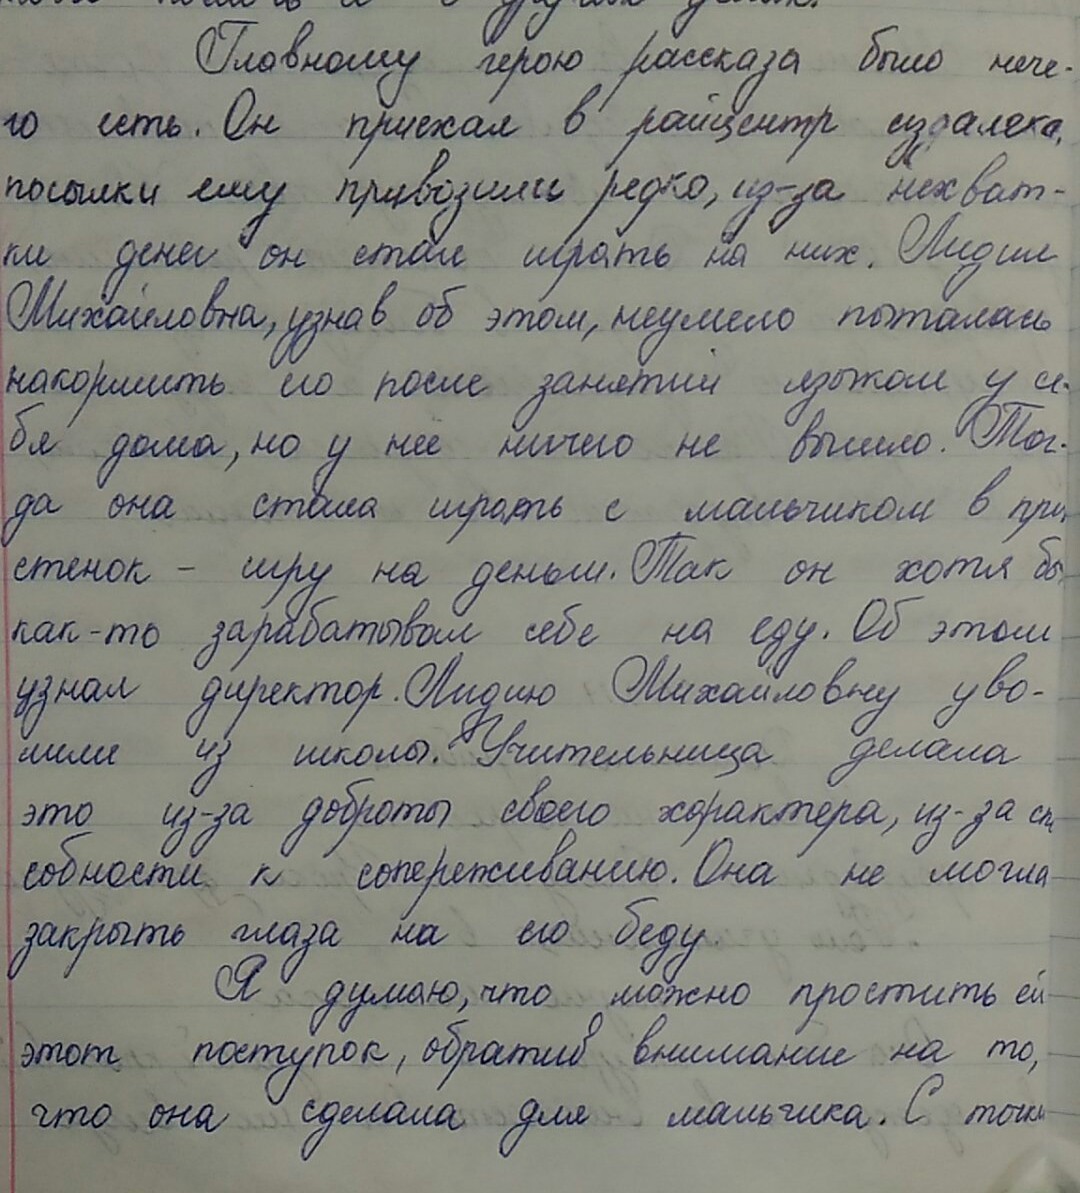 других
Главному герою рассказа было нече-
го есть. Он приехал в райцентр издалека,
посылки ему привозили редко, из-за нехват-
ки денег он стал играть на них. Лидия
Михайловна, узнав об этом, неумело пыталась
накормить его после занятий языком у се-
бя дома, но у неё ничего не вышло. Тог-
да она стала играть с мальчиком в при
стенок - игру на деньги. Так он хотя бы
как-то зарабатывал себе на еду. Об этом
узнал директор. Лидию Михайловну уво-
лили из школы. Учительница делала
это из-за доброты своего характера, из-за сп
собности к сопереживанию. Она не могла
закрыть глаза на его беду
Я думаю, что можно простить ей
этот поступок, обратив внимание на то,
что она сделала для мальчика. С точки